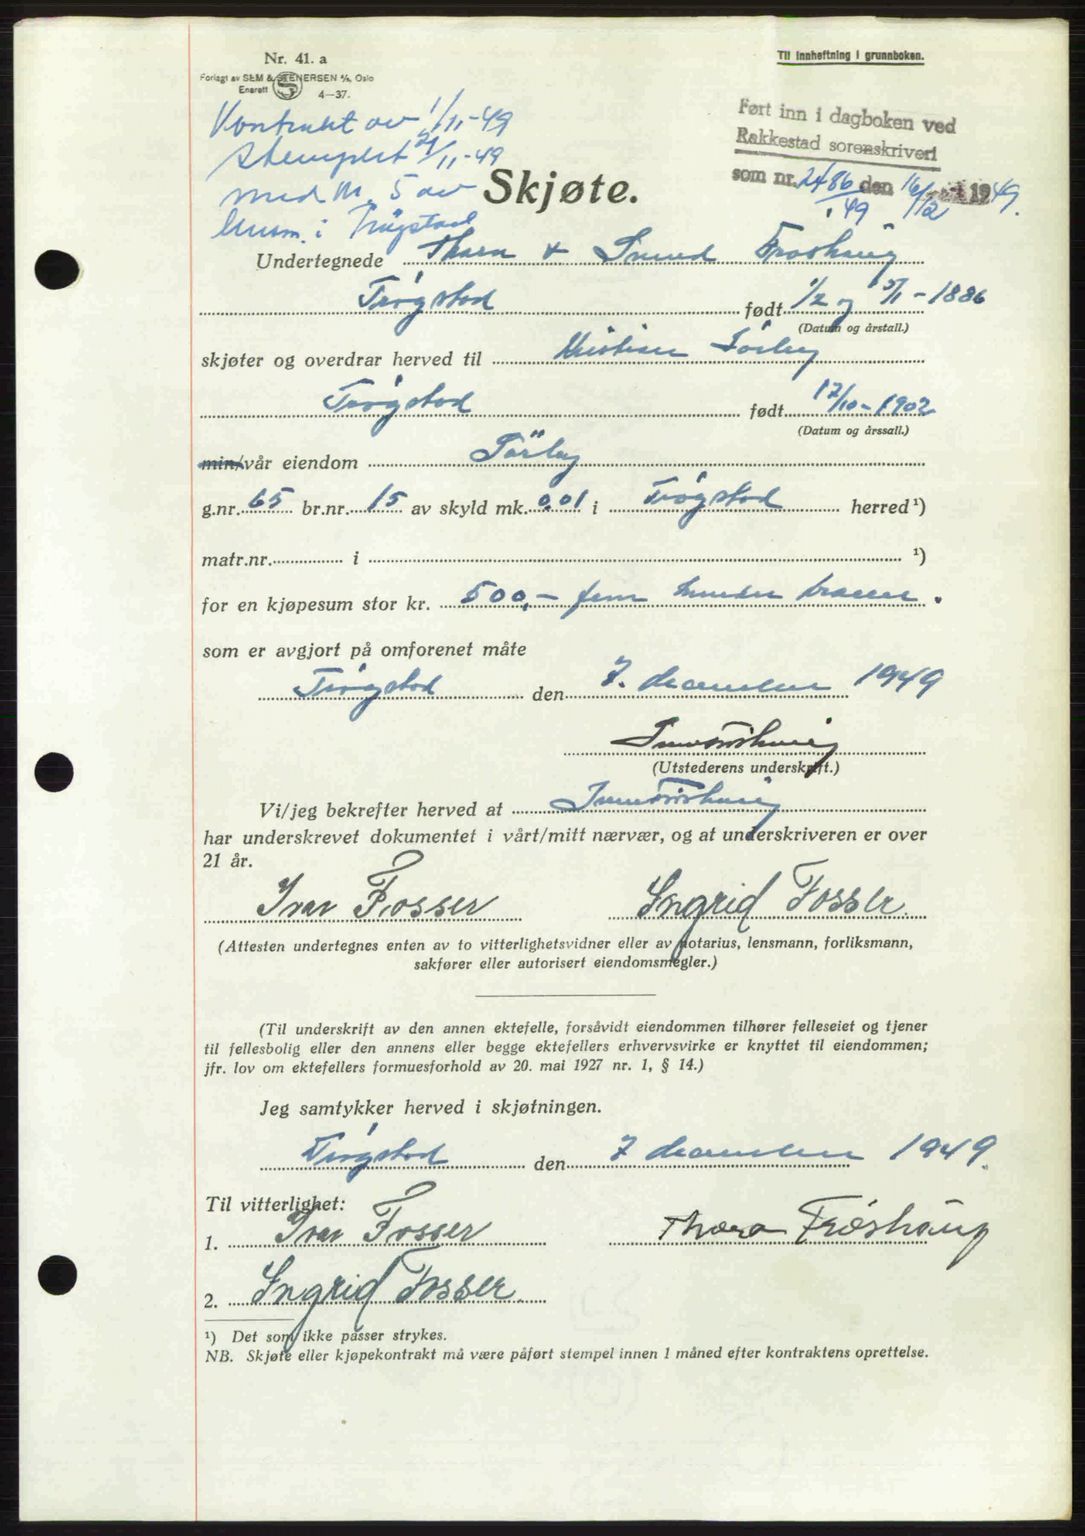 Nr. 41. a
Forlagt av SEM & STENERSEN A/S, Oslo
Enerett 4—37.
Til innheftning i grunnboken.
Ført inn i dagboken ved
Rakkestad sorenskriveri
som nr. 2486/49 den 16/12 1949.
Kontrakt av 1/11-49
stemplet 21/11-49
med kr. 5 av
lensm. i Trøgstad
Skjøte.
Undertegnede Thora & Frøshaug
Trøgstad født 1/2 og 5/1 - 1886
(Datum og årstall.)
skjøter og overdrar herved til Kristian Sörby
Trøgstad født 17/10-1902
(Datum og årssall.)
min/vår eiendom Sörby
g.nr. 65 br.nr. 15 av skyld mk. 0,01 i Trøgstad herred ¹)
matr.nr. i ¹)
for en kjøpesum stor kr. 500,- fem hundre kroner.
som er avgjort på omforenet måte
Trøgstad den 7. december 1949
(Utstederens underskrift.)
Vi/jeg bekrefter herved at
har underskrevet dokumentet i vårt/mitt nærvær, og at underskriveren er over
21 år.
Ivar Fosser Ingrid Fosser.
(Attesten undertegnes enten av to vitterlighetsvidner eller av notarius, lensmann, forliksmann,
sakfører eller autorisert eiendomsmegler.)
(Til underskrift av den annen ektefelle, forsåvidt eiendommen tilhører felleseiet og tjener
til fellesbolig eller den annens eller begge ektefellers erhvervsvirke er knyttet til eiendommen;
jfr. lov om ektefellers formuesforhold av 20. mai 1927 nr. 1, § 14.)
Jeg samtykker herved i skjøtningen.
Trøgstad den 7 december 1949.
Til vitterlighet:
1. Ivar Fosser Thora Frøshaug
2. Ingrid Fosser.
¹) Det som ikke passer strykes.
NB. Skjøte eller kjøpekontrakt må være påført stempel innen 1 måned efter kontraktens oprettelse.